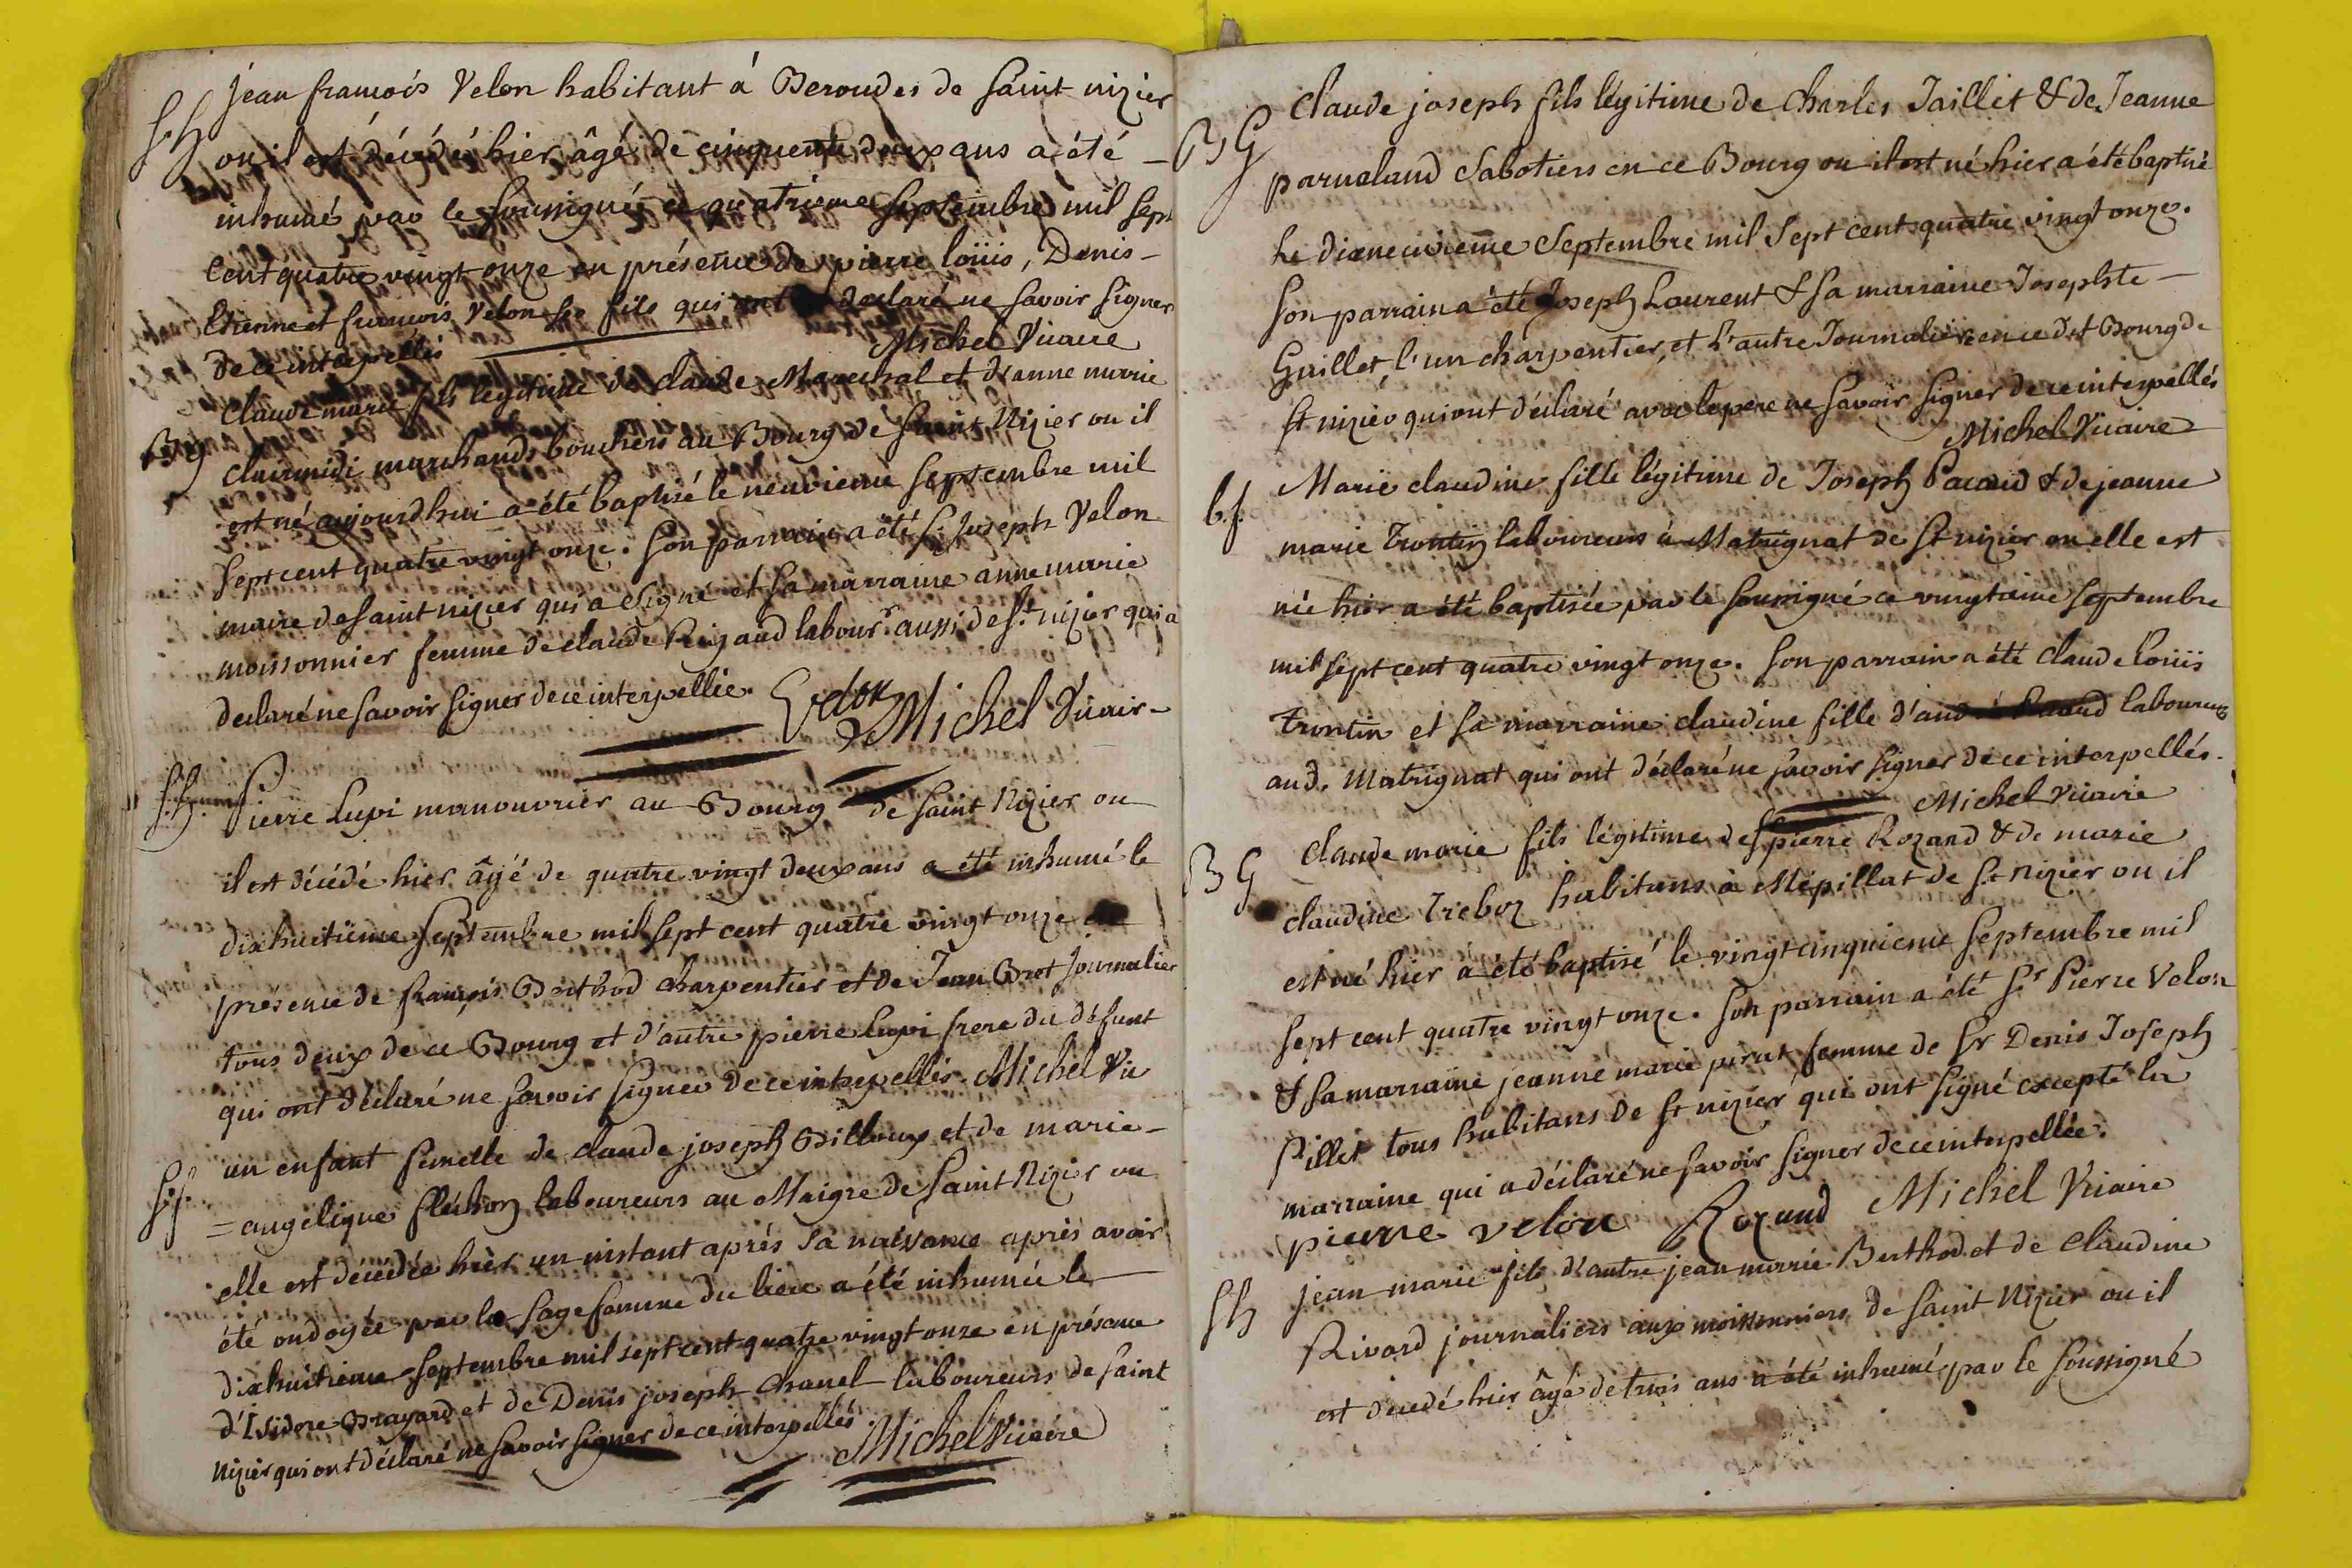 jean francois Velon habitant á Beroudes de saint nizier
Sh
ou il est décédé hier âgé de cinquente deux ans a été –
inhumé par le soussigné ce quatrieme septembre mil sept
cent quatre vingt onze en présence de pierre loüis, Denis –
Etienne et francois Velon ses fils qui ont declaré ne savoir signer
de ce interpellés
Michel Vicaire
Claude marie fils legitime de claude Marechal et d'anne marie
BG
clairmidi marchands bouchers au Bourg de Saint Nizier ou il
est né aujourdhui a été baptisé le neuvieme septembre mil
sept cent quatre vingt onze. son parrain a été Sr Joseph Velon
maire de saint nizier qui a signé et sa marraine anne marie
moissonnier femme de claude Rigaud labourr aussi de St nizier qui a
declaré ne savoir signer de ce interpellée.
Velon Michel Vicair
Sh. Pierre Lupi manouvrier au Bourg de Saint Nizier ou
il est décédé hier âgé de quatre vingt deux ans a été inhumé le
dixhuitieme septembre mil sept cent quatre vingt onze en
présence de françois Berthod charpentier et de Jean Brot Journalier
tous deux de ce Bourg et d'autre pierre Lupi frere du défunt
qui ont déclaré ne savoir signer de ce interpellés. Michel Vic
Sf. un enfant femelle de claude joseph Billoux et de marie –
= angelique fléchon laboureurs au Maigre de Saint Nizier ou
elle est décédée hier un instant aprés sa naissance aprés avoir
été ondoyée par la sage femme du lieu a été inhumée le
dixhuitieme septembre mil sept cent quatre vingt onze en présence
d'Isidore Brayard et de Denis joseph Chanel laboureurs de saint
Nizier qui ont déclaré ne savoir signer de ce interpellés
Michel Vicaire
claude joseph fils légitime de Charles Jaillet & de Jeanne
BG
parnaland Sabotiers en ce Bourg ou il est né hier a été baptisé
le dixneuvieme Septembre mil Sept cent quatre vingt onze.
son parrain a été Joseph Laurent & sa marraine Josephte –
Guillet, l'un charpentier, et l'autre Journaliere en ce dit Bourg de
St nizier qui ont déclaré avec le pere ne savoir signer de ce interpellés
Michel Vicaire
b.f. Marie claudine fille légitime de Joseph Pacaud & de jeanne
marie Trontin laboureurs à Matrignat de St nizier ou elle est
née hier a été baptisée par le soussigné ce vingtieme septembre
mil sept cent quatre vingt onze. son parrain a été claude loüis
Trontin et sa marraine claudine fille d'andré Pacaud laboureurs
aud. Matrignat qui ont déclaré ne savoir signer de ce interpellés.
Michel Vicaire
BG claude marie fils légitime de Sr pierre Rozand & de marie
claudine Treboz habitans à Mépillat de St Nizier ou il
est né hier a été baptisé le vingt cinquieme septembre mil
sept cent quatre vingt onze. son parrain a été Sr Pierre Velon
& sa marraine jeanne marie pirat femme de Sr Denis Joseph
Pillet tous habitans de St nizier qui ont signé excepté la
marraine qui a déclaré ne savoir signer de ce interpellée.
pierre velon Rozand Michel Vicaire
Sh jean marie fils d'autre jean marie Berthod et de claudine
Rivard journaliers aux moissonniers de Saint Nizier ou il
est décedé hier âgé de trois ans a été inhumé par le soussigné